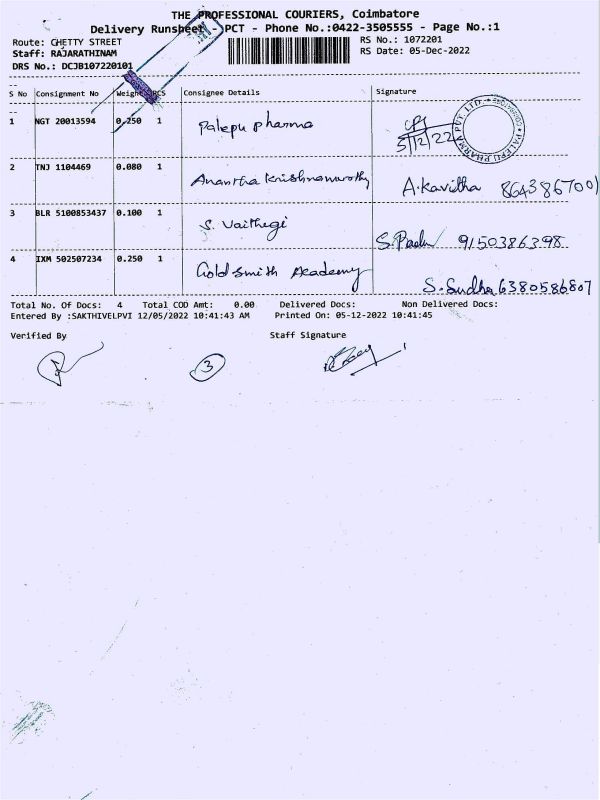 THE PROFESSIONAL COURIERS, Coimbatore
Delivery Runsheet - PCT - Phone No.:0422-3505555 - Page No.:1
Route: CHETTY STREET
RS No.: 1072201
Staff: RAJARATHINAM
RS Date: 05-Dec-2022
DRS No.: DCJB107220101
S No Consignment No Weight PCS Consignee Details Signature
1 NGT 20013594 0.250 1 Palepu Pharma 5/12/22
PALEPU PHARMA PVT. LTD.
2 TNJ 1104469 0.080 1 Anantha Krishnamurthy A.Kavitha 8643867001
3 BLR 5100853437 0.100 1 S. Vaithegi 9150386398
4 IXM 502507234 0.250 1 Gold Smith Academy S.Sudha 6380586807
Total No. Of Docs: 4 Total COD Amt: 0.00 Delivered Docs: Non Delivered Docs:
Entered By :SAKTHIVELPVI 12/05/2022 10:41:43 AM Printed On: 05-12-2022 10:41:45
Verified By Staff Signature
3